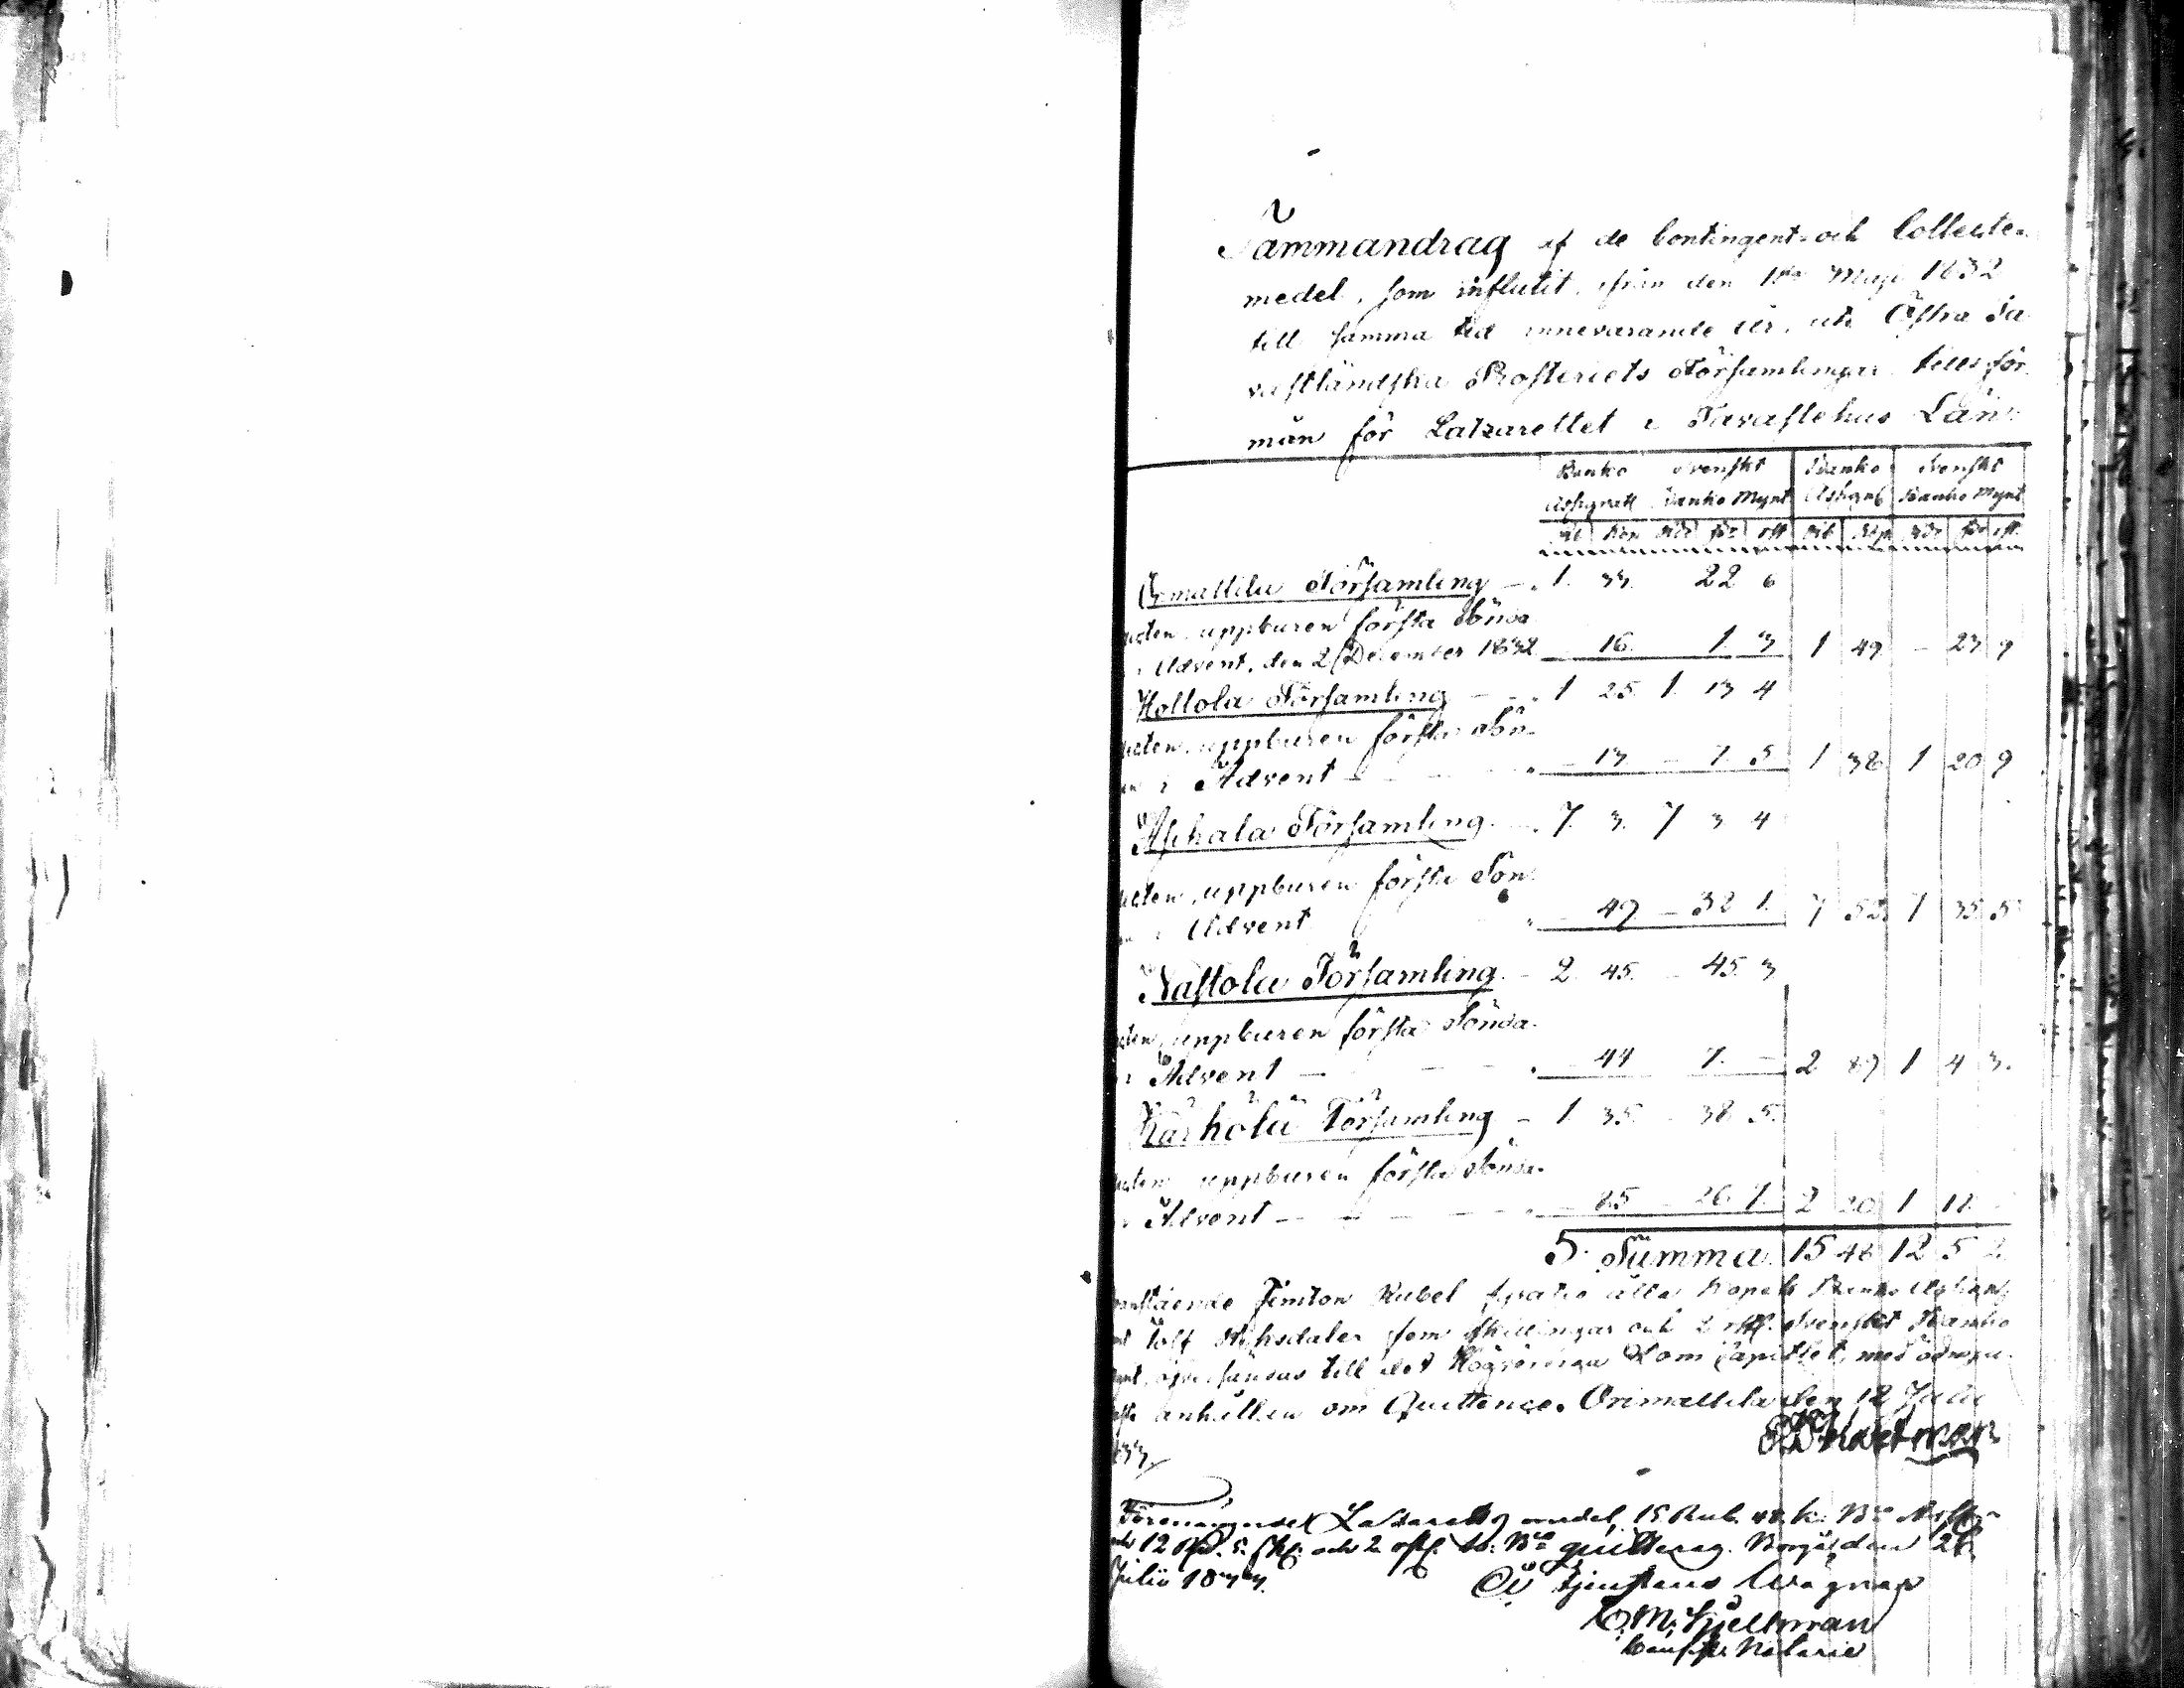 Sammandrag af de Contingent- och Collecte-
medel, som influtit, ifrån den 1sta Maji 1832
till samma tid innevarande år, uti Östra Ta-
vastländska Prosteriets Församlingar till för-
mån för Latzarettet i Tavastehus Län.
Banko Svenskt Banko Svenskt
Assignatt Banko Mynt Assignat Banko Mynt
Rub Kop Rdr sk rst Rub Kop Rdr sk rst
Orimattila Församling – 1. 33. 22 6
uppburen första Sönda
Advent, den 2 December 1832 – 16. 1. 3 1 49 – 23 9
Hollola Församling – 1 25 1. 13 4
uppburen första Sön-
i Advent – 13 – 7. 5 1 38 1 20 9
Asikala Församling – 7. 3. 7 3 4
uppburen första Sön
i Advent – 49 – 32 1. 7 52 7 35 5
Nastola Församling – 2 45. – 45. 3
uppburen första Sönda-
i Advent – 44 7. – 2 89 1 4 3.
Kärkölä Församling – 1 35. – 38 5.
uppburen första Sönda-
i Advent – 85 – 26. 7. 2 20 1 17 –
S. Summa 15 48 12 5 2
Femton Rubel fyratio åtta Kopek Banko
Tolf Riksdaler fem skillingar och 2 rst. Svenskt Banko
till det Högvördiga Dom Capitlet, med ödmju-
anhållan om Quittence. Orimattila den 12 Julii
33. Hartman
Latzaretts medel, 15 Rub. 48 k. Bco
12 Rd. 5 sk. och 2 rst. Sv. Bco quitteras. Borgå, den 26
Julii 1833. På tjenstens Wägnar
C. M. Kjellman
Notarie